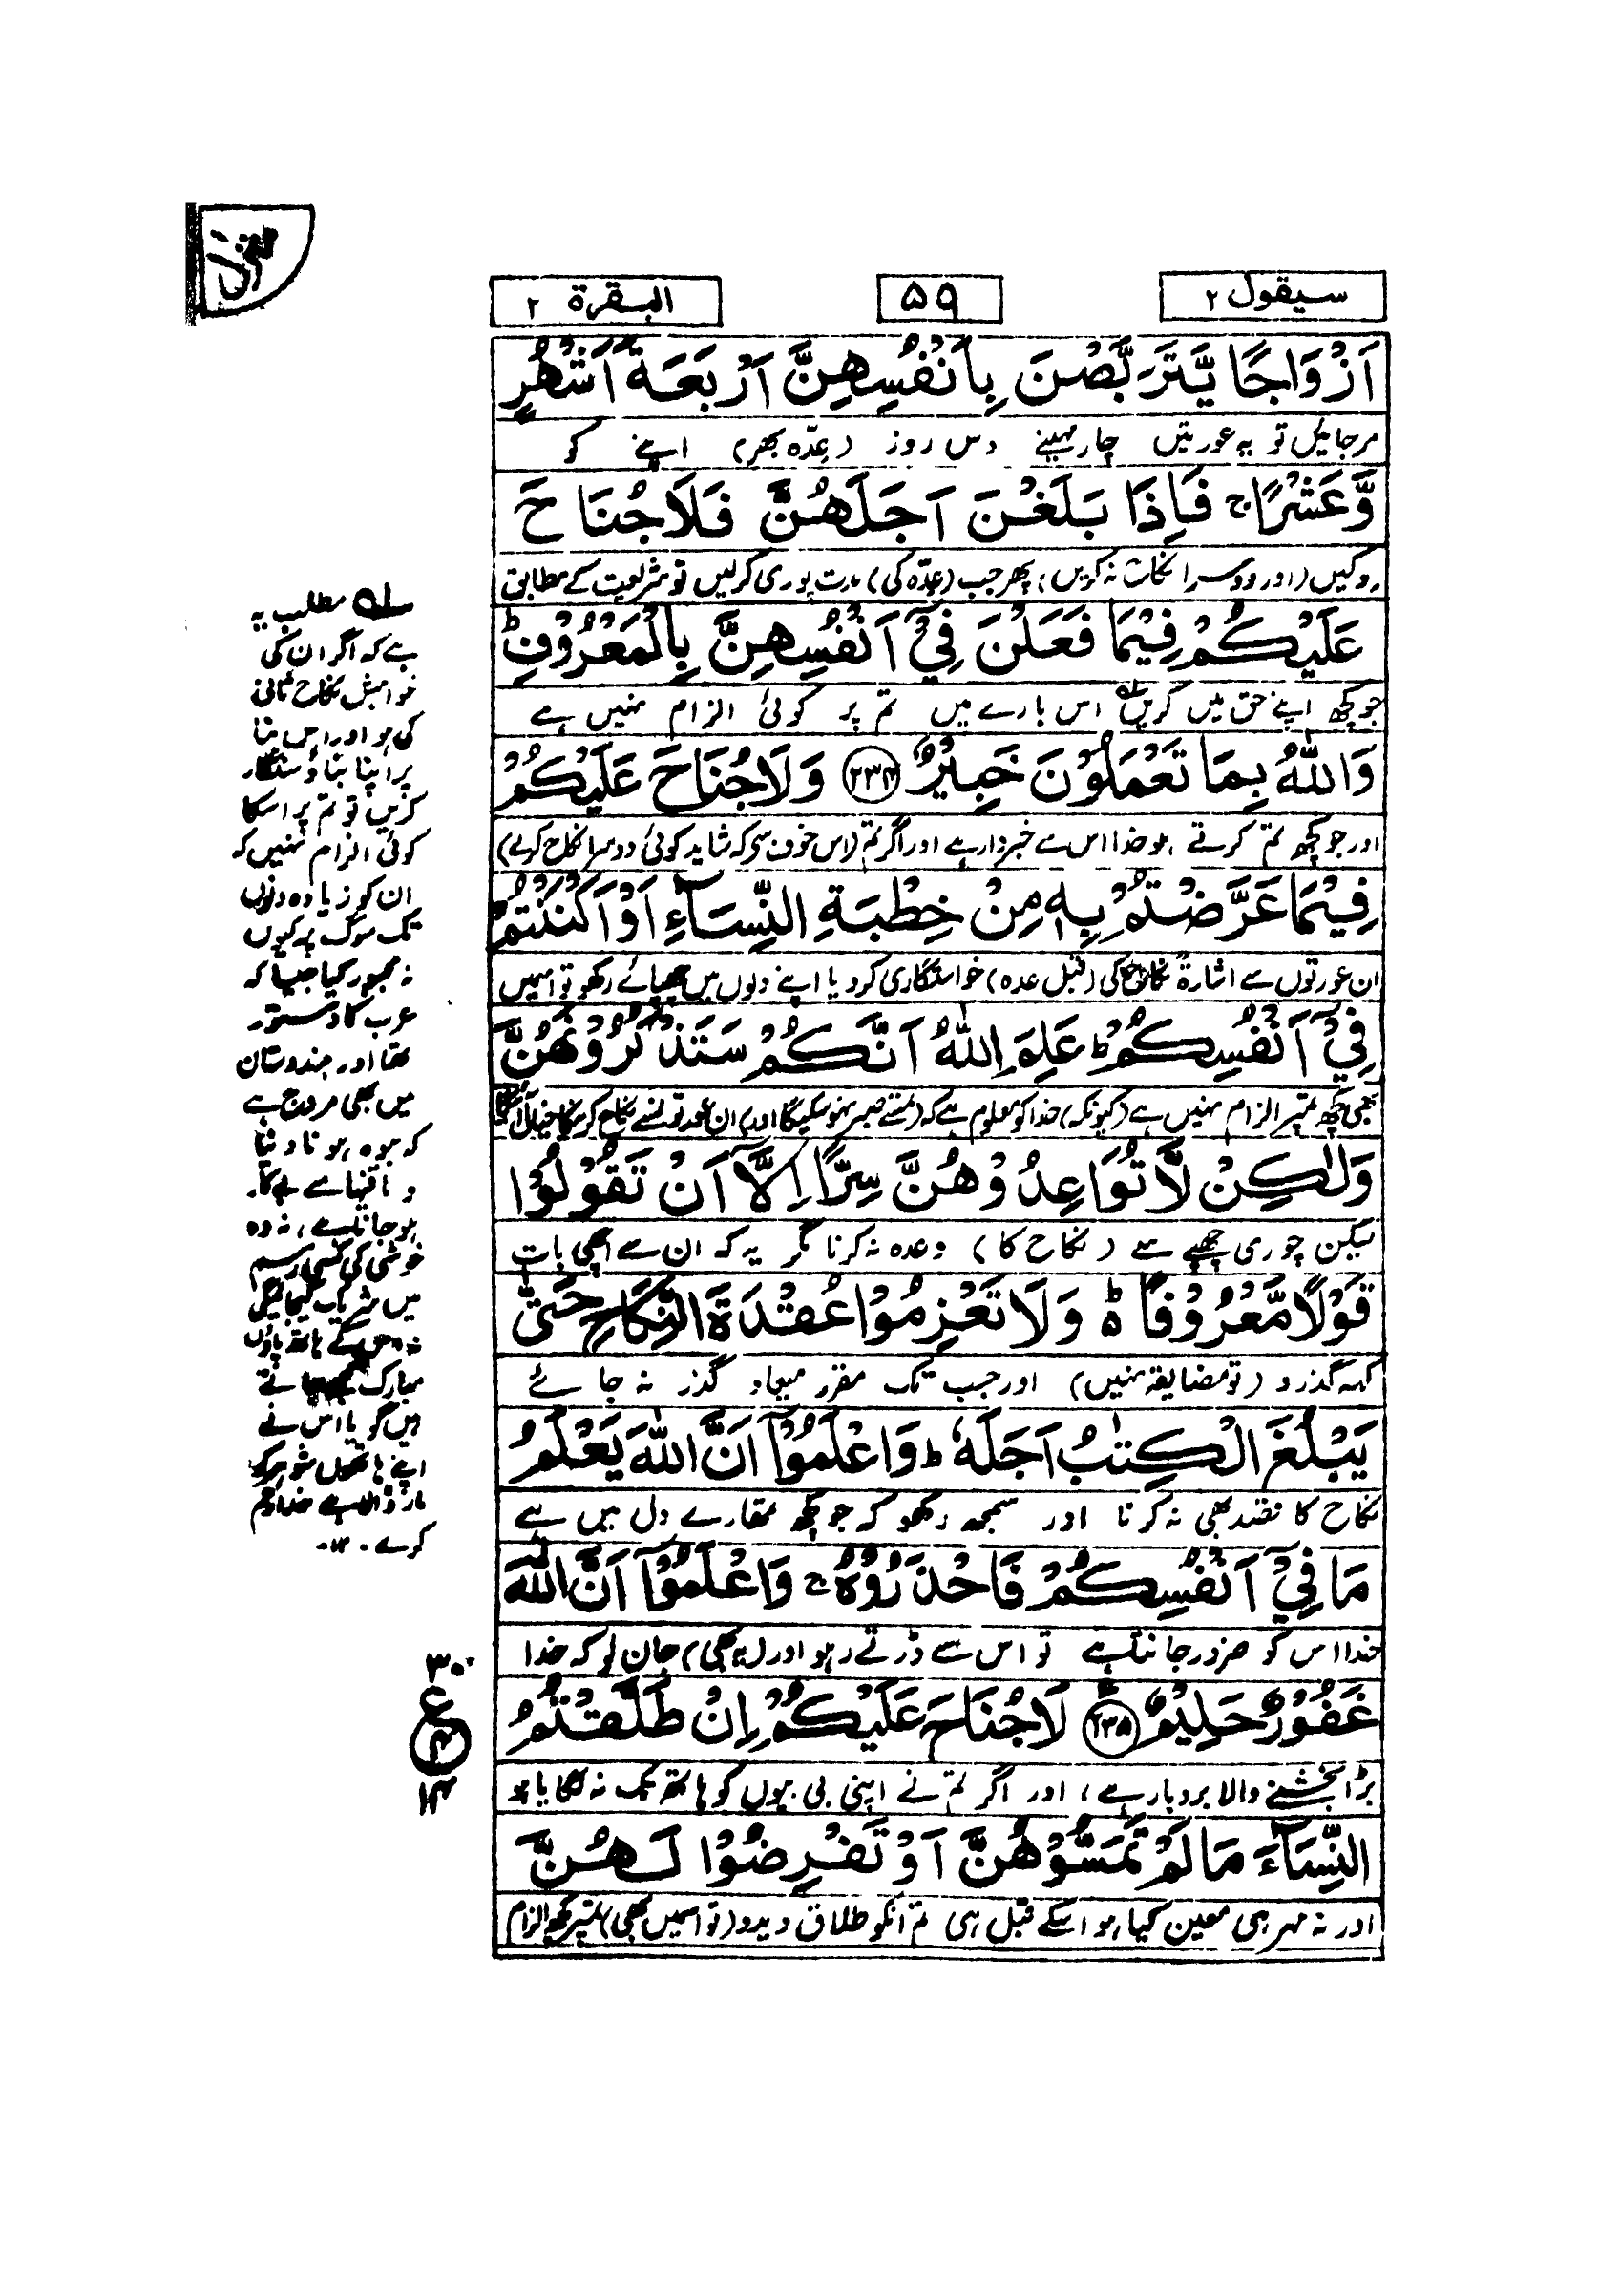 منزل
سيقول ٢
٥٩
البقرة ٢
اَزْوَاجًا يَّتَرَبَّصْنَ بِاَنْفُسِهِنَّ اَرْبَعَةَ اَشْهُرٍ
مرجائیں تو یہ عورتیں چار مہینے دس روز (عدّہ بھر) اپنے کو
وَّعَشْرًا ۚ فَاِذَا بَلَغْنَ اَجَلَهُنَّ فَلَا جُنَاحَ
روکیں (اور دوسرا نکاح نہ کریں) پھر جب (عدّہ کی) مدت پوری کر لیں تو شریعت کے مطابق
عَلَيْكُمْ فِيْمَا فَعَلْنَ فِيْٓ اَنْفُسِهِنَّ بِالْمَعْرُوْفِ ؕ
جو کچھ اپنے حق میں کریں ۱ اس بارے میں تم پر کوئی الزام نہیں ہے
وَاللّٰهُ بِمَا تَعْمَلُوْنَ خَبِيْرٌ ﴿٢٣٤﴾ وَلَا جُنَاحَ عَلَيْكُمْ
اور جو کچھ تم کرتے ہو خدا اس سے خبردار ہے اور اگر تم (اس خوف سے کہ شاید کوئی دوسرا نکاح کرلے)
فِيْمَا عَرَّضْتُمْ بِهٖ مِنْ خِطْبَةِ النِّسَآءِ اَوْ اَكْنَنْتُمْ
ان عورتوں سے اشارۃً نکاح کی (قبل عدہ) خواستگاری کرو یا اپنے دلوں میں چھپائے رکھو تو اسمیں
فِيْٓ اَنْفُسِكُمْ ؕ عَلِمَ اللّٰهُ اَنَّكُمْ سَتَذْكُرُوْنَهُنَّ
بھی کچھ تمپر الزام نہیں ہے (کیونکہ) خدا کو معلوم ہے کہ (تمسے صبر نہو سکیگا اور) ان عورتوں سے نکاح کرنیکا خیال آئیگا
وَلٰكِنْ لَّا تُوَاعِدُوْهُنَّ سِرًّا اِلَّآ اَنْ تَقُوْلُوْا
لیکن چوری چھپے سے (نکاح کا) وعدہ نہ کرنا مگر یہ کہ ان سے اچھی بات
قَوْلًا مَّعْرُوْفًا ؕ۵ وَلَا تَعْزِمُوْا عُقْدَةَ النِّكَاحِ حَتّٰى
کہہ گذرو (تو مضایقہ نہیں) اور جب تک مقرر میعاد گذر نہ جائے
يَبْلُغَ الْكِتٰبُ اَجَلَهٗ ؕ وَاعْلَمُوْٓا اَنَّ اللّٰهَ يَعْلَمُ
نکاح کا قصد بھی نہ کرنا اور سمجھ رکھو کہ جو کچھ تمھارے دل میں ہے
مَا فِيْٓ اَنْفُسِكُمْ فَاحْذَرُوْهُ ۚ وَاعْلَمُوْٓا اَنَّ اللّٰهَ
خدا اس کو ضرور جانتا ہے تو اس سے ڈرتے رہو اور (یہ بھی) جان لو کہ خدا
غَفُوْرٌ حَلِيْمٌ ﴿٢٣٥﴾ لَا جُنَاحَ عَلَيْكُمْ اِنْ طَلَّقْتُمُ
بڑا بخشنے والا بردبار ہے، اور اگر تم نے اپنی بی بیوں کو ہاتھ تک نہ لگایا ہو
النِّسَآءَ مَا لَمْ تَمَسُّوْهُنَّ اَوْ تَفْرِضُوْا لَهُنَّ
اور نہ مہر ہی معین کیا ہو اسکے قبل ہی تم انکو طلاق دیدو (تو اسمیں بھی) تمپر کچھ الزام
۱ مطلب یہ
ہے کہ اگر ان کی
خواہش نکاح ثانی
کی ہو اور اس بنا
پر اپنا بناؤ سنگار
کریں تو تم پر اسکا
کوئی الزام نہیں کہ
ان کو زیادہ دنوں
تک سوگ پر کیوں
نہ مجبور کیا جیسا کہ
عرب کا دستور
تھا اور ہندوستان
میں بھی مروج ہے
کہ بیوہ ہونا دنیا
و مافیہا سے بیکار
ہوجانا ہے، نہ وہ
خوشی کی کسی رسم
میں شریک کیجائیگی
نہ اس کے ہاتھ پاؤں
مبارک سمجھے جاتے
ہیں گویا اس نے
اپنے ہاتھوں شوہر کو
مار ڈالا ہے خدا رحم
کرے ۔ ۱۲۔
۳۰
ع
۴
۱۴